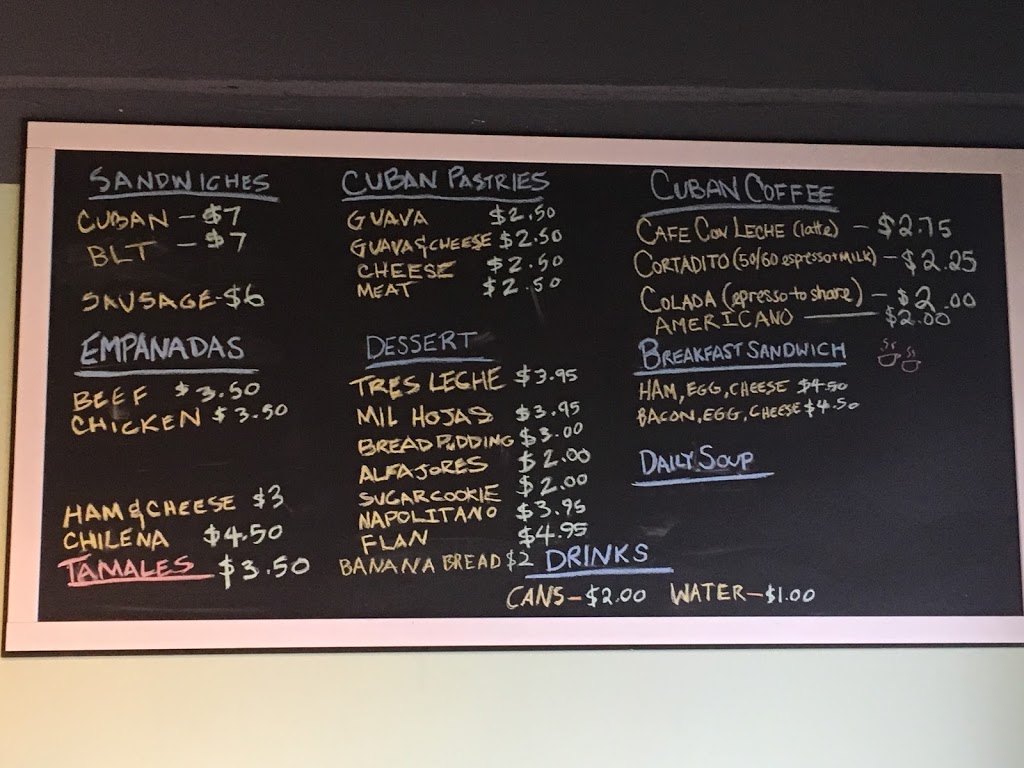 SANDWICHES
CUBAN - $7
BLT - $7
SAUSAGE - $6
EMPANADAS
BEEF $3.50
CHICKEN $3.50
HAM & CHEESE $3
CHILENA $4.50
TAMALES $3.50
CUBAN PASTRIES
GUAVA $2.50
GUAVA & CHEESE $2.50
CHEESE $2.50
MEAT $2.50
DESSERT
TRES LECHE $3.95
MIL HOJAS $3.95
BREAD PUDDING $3.00
ALFAJORES $2.00
SUGAR COOKIE $2.00
NAPOLITANO $3.95
FLAN $4.95
BANANA BREAD $2
CUBAN COFFEE
CAFE CON LECHE (latte) - $2.75
CORTADITO (50/60 espresso + MILK) - $2.25
COLADA (epresso to share) - $2.00
AMERICANO — $2.00
BREAKFAST SANDWICH
HAM, EGG, CHEESE $4.50
BACON, EGG, CHEESE $4.50
DAILY SOUP
DRINKS
CANS - $2.00 WATER - $1.00